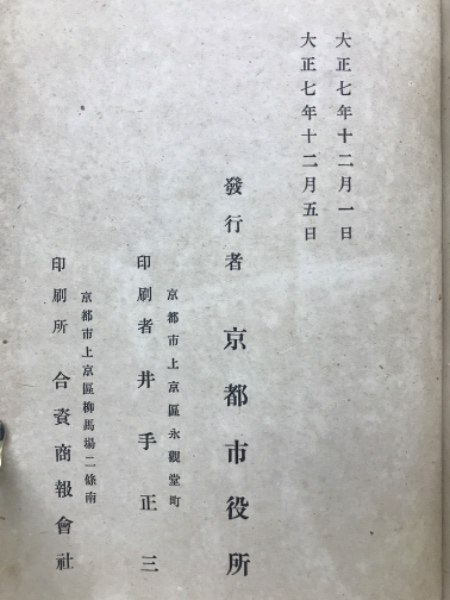 大正七年十二月一日
大正七年十二月五日
發行者 京都市役所
京都市上京區永觀堂町
印刷者 井手正三
京都市上京區柳馬場二條南
印刷所 合資商報會社